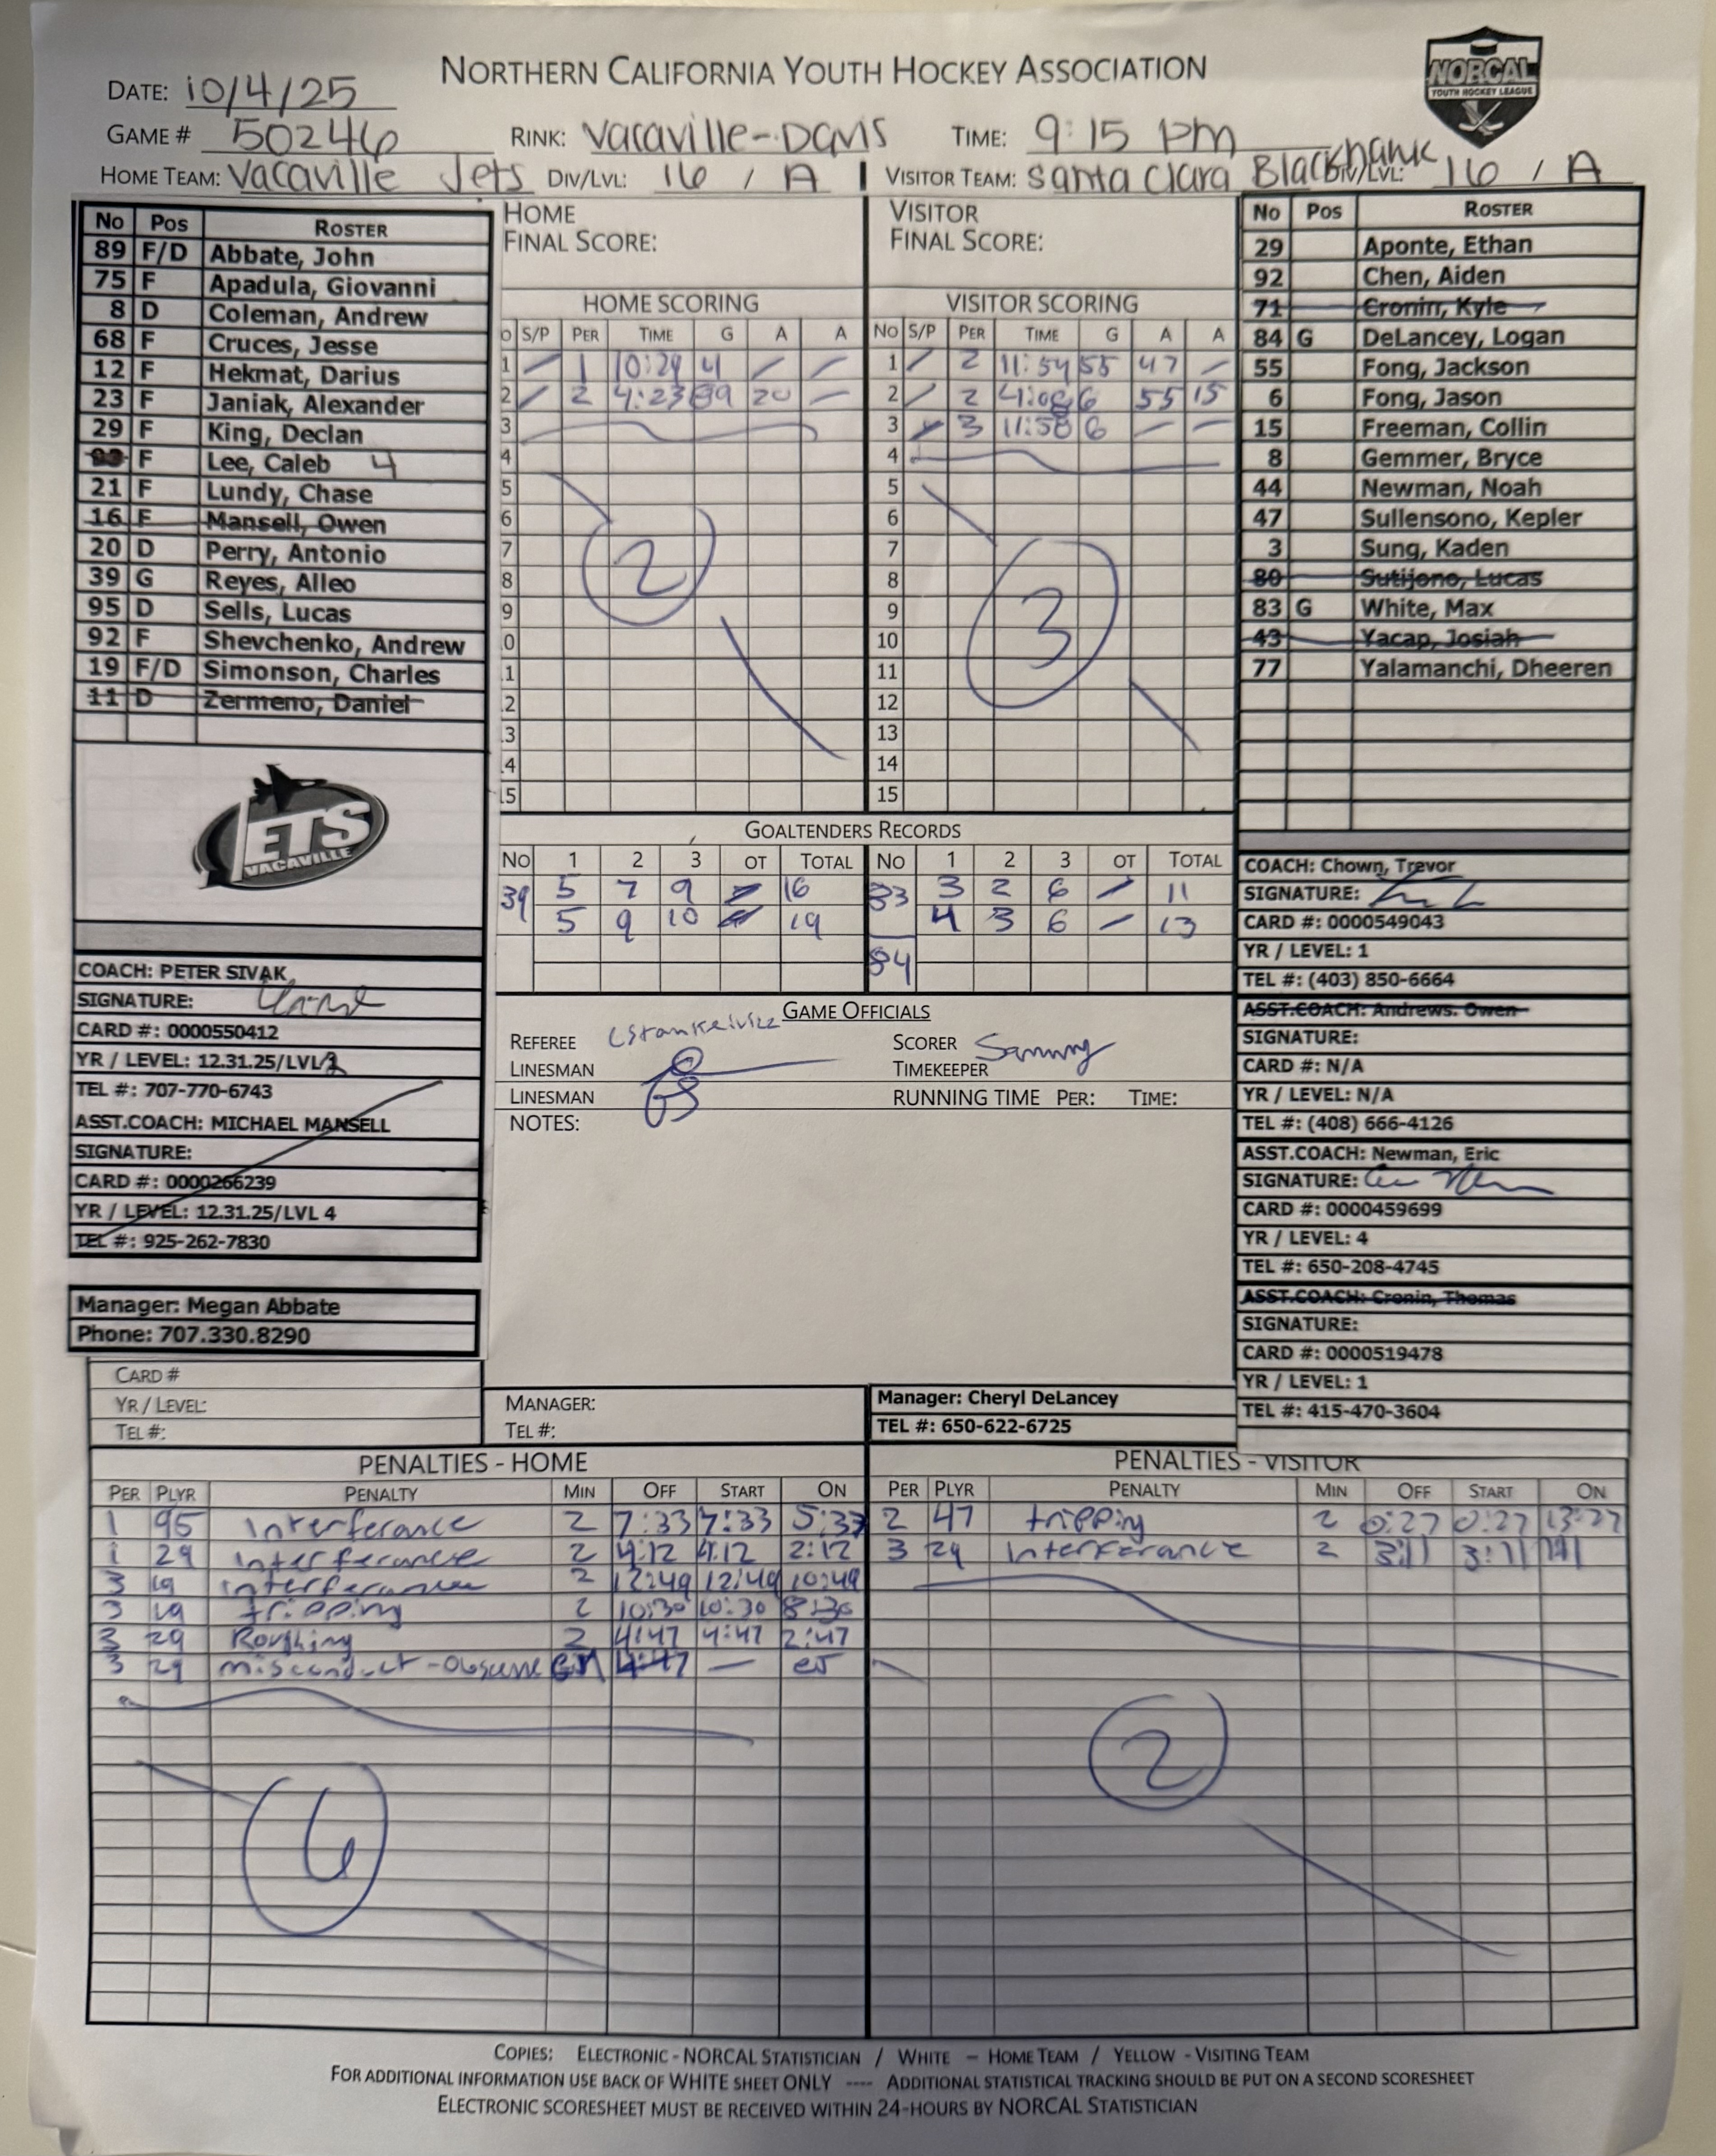 NORTHERN CALIFORNIA YOUTH HOCKEY ASSOCIATION
NORCAL
YOUTH HOCKEY LEAGUE
DATE: 10/4/25
GAME # 50246 RINK: Vacaville-Davis TIME: 9:15 pm
HOME TEAM: Vacaville Jets DIV/LVL: 16 / A VISITOR TEAM: Santa Clara Blackhawk DIV/LVL: 16 / A
No Pos ROSTER
89 F/D Abbate, John
75 F Apadula, Giovanni
8 D Coleman, Andrew
68 F Cruces, Jesse
12 F Hekmat, Darius
23 F Janiak, Alexander
29 F King, Declan
F Lee, Caleb 4
21 F Lundy, Chase
16 F Mansell, Owen
20 D Perry, Antonio
39 G Reyes, Alleo
95 D Sells, Lucas
92 F Shevchenko, Andrew
19 F/D Simonson, Charles
11 D Zermeno, Daniel
JETS
VACAVILLE
COACH: PETER SIVAK
SIGNATURE:
CARD #: 0000550412
YR / LEVEL: 12.31.25/LVL
TEL #: 707-770-6743
ASST.COACH: MICHAEL MANSELL
SIGNATURE:
CARD #: 0000266239
YR / LEVEL: 12.31.25/LVL 4
TEL #: 925-262-7830
Manager: Megan Abbate
Phone: 707.330.8290
CARD #
YR / LEVEL:
TEL #:
HOME
FINAL SCORE:
VISITOR
FINAL SCORE:
HOME SCORING
O S/P PER TIME G A A
1 / 1 10:24 4 / /
2 / 2 4:23 89 20 —
3
4
5
6
7
8
9
0
1
2
3
4
5
2
VISITOR SCORING
No S/P PER TIME G A A
1 / 2 11:54 55 47 —
2 / 2 4:08 6 55 15
3 / 3 11:58 6 — —
4
5
6
7
8
9
10
11
12
13
14
15
3
GOALTENDERS RECORDS
No 1 2 3 OT TOTAL No 1 2 3 OT TOTAL
39 5 7 9 16 83 3 2 6 — 11
5 9 10 19 4 3 6 — 13
84
GAME OFFICIALS
REFEREE SCORER Sammy
LINESMAN TIMEKEEPER
LINESMAN RUNNING TIME PER: TIME:
NOTES:
MANAGER:
TEL #:
Manager: Cheryl DeLancey
TEL #: 650-622-6725
No Pos ROSTER
29 Aponte, Ethan
92 Chen, Aiden
71 Cronin, Kyle
84 G DeLancey, Logan
55 Fong, Jackson
6 Fong, Jason
15 Freeman, Collin
8 Gemmer, Bryce
44 Newman, Noah
47 Sullensono, Kepler
3 Sung, Kaden
80 Sutijono, Lucas
83 G White, Max
43 Yacap, Josiah
77 Yalamanchi, Dheeren
COACH: Chown, Trevor
SIGNATURE:
CARD #: 0000549043
YR / LEVEL: 1
TEL #: (403) 850-6664
ASST.COACH: Andrews. Owen
SIGNATURE:
CARD #: N/A
YR / LEVEL: N/A
TEL #: (408) 666-4126
ASST.COACH: Newman, Eric
SIGNATURE:
CARD #: 0000459699
YR / LEVEL: 4
TEL #: 650-208-4745
ASST.COACH: Cronin, Thomas
SIGNATURE:
CARD #: 0000519478
YR / LEVEL: 1
TEL #: 415-470-3604
PENALTIES - HOME
PER PLYR PENALTY MIN OFF START ON
1 95 Interferance 2 7:33 7:33 5:33
1 29 Interferance 2 4:12 4:12 2:12
3 19 Interferance 2 12:49 12:49 10:49
3 19 tripping 2 10:30 10:30 8:30
3 29 Roughing 2 4:47 4:47 2:47
3 29 misconduct - obscene GM 4:47 —
6
PENALTIES - VISITOR
PER PLYR PENALTY MIN OFF START ON
2 47 tripping 2 0:27 0:27 13:27
3 29 Interferance 2 3:11 3:11 1:11
2
COPIES: ELECTRONIC - NORCAL STATISTICIAN / WHITE – HOME TEAM / YELLOW - VISITING TEAM
FOR ADDITIONAL INFORMATION USE BACK OF WHITE SHEET ONLY ---- ADDITIONAL STATISTICAL TRACKING SHOULD BE PUT ON A SECOND SCORESHEET
ELECTRONIC SCORESHEET MUST BE RECEIVED WITHIN 24-HOURS BY NORCAL STATISTICIAN